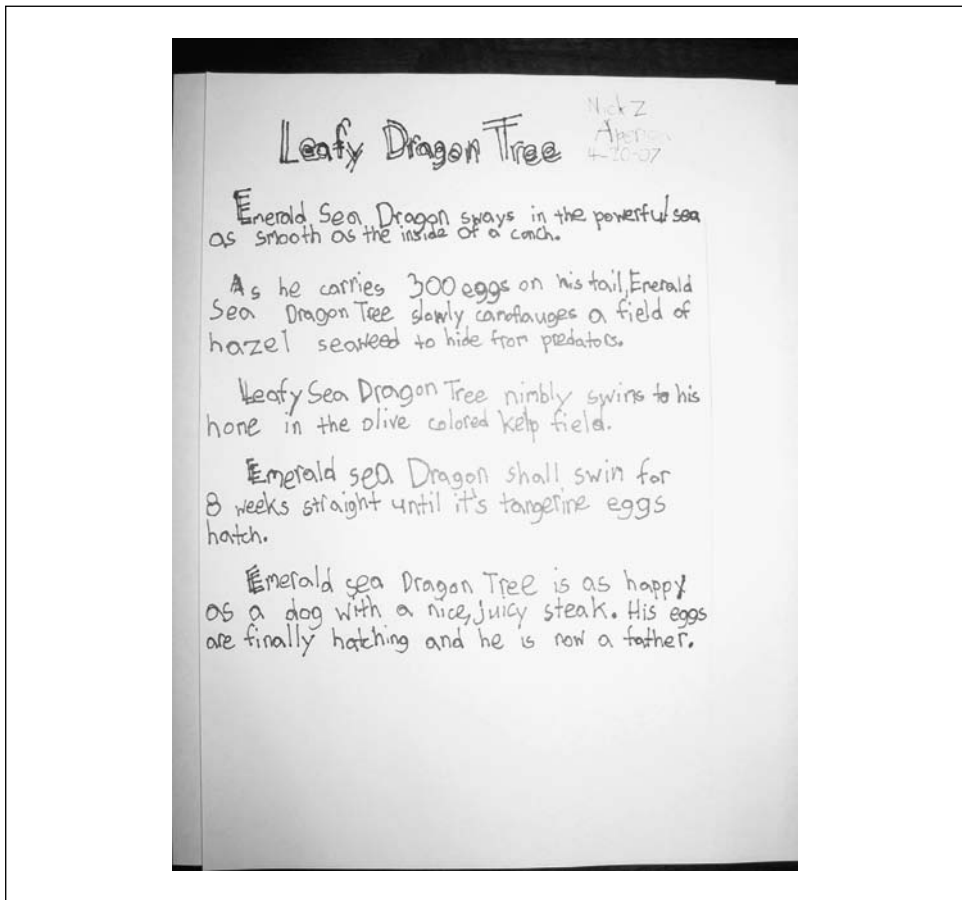 Nick Z
Leafy Dragon Tree
4-20-07
Emerald Sea Dragon sways in the powerful sea
as smooth as the inside of a conch.
As he carries 300 eggs on his tail, Emerald
Sea Dragon Tree slowly camoflauges a field of
hazel seaweed to hide from predators.
Leafy Sea Dragon Tree nimbly swims to his
home in the olive colored kelp field.
Emerald sea Dragon shall swim for
8 weeks straight until it's tangerine eggs
hatch.
Emerald sea Dragon Tree is as happy
as a dog with a nice, juicy steak. His eggs
are finally hatching and he is now a father.